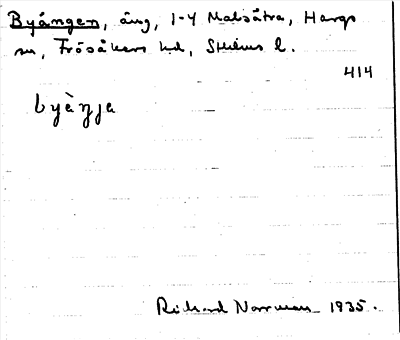 Byängen, äng, 1-4 Malsätra, Hargs
sn, Frösåkers hd, Sthlms l.
414
byæ̀ŋja
Rickard Norrman 1935.